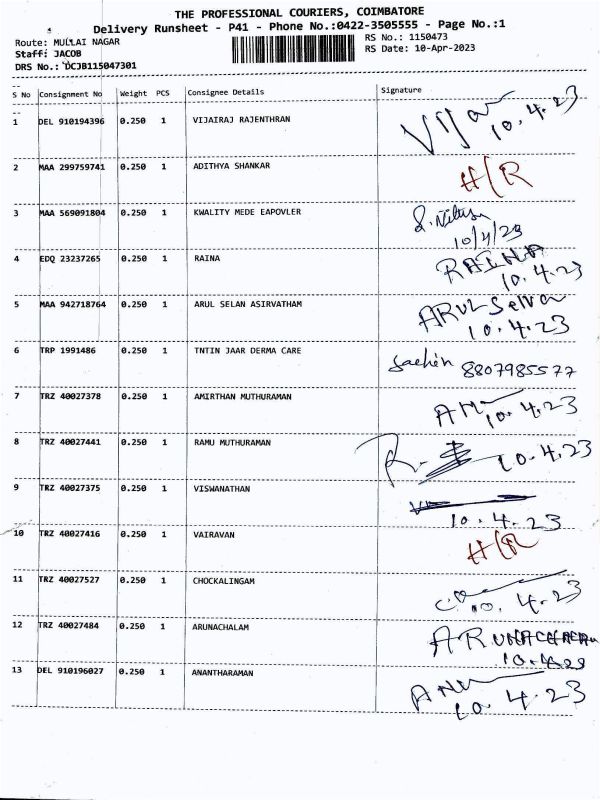 THE PROFESSIONAL COURIERS, COIMBATORE
Delivery Runsheet - P41 - Phone No.:0422-3505555 - Page No.:1
Route: MULLAI NAGAR
RS No.: 1150473
Staff: JACOB
RS Date: 10-Apr-2023
DRS No.: DCJB115047301
S No Consignment No Weight PCS Consignee Details Signature
1 DEL 910194396 0.250 1 VIJAIRAJ RAJENTHRAN 10.4.23
2 MAA 299759741 0.250 1 ADITHYA SHANKAR H/R
3 MAA 569091804 0.250 1 KWALITY MEDE EAPOVLER
10/4/23
4 EDQ 23237265 0.250 1 RAINA RAINA
10.4.23
5 MAA 942718764 0.250 1 ARUL SELAN ASIRVATHAM ARUL Selva
10.4.23
6 TRP 1991486 0.250 1 TNTIN JAAR DERMA CARE Sachin 8807985577
7 TRZ 40027378 0.250 1 AMIRTHAN MUTHURAMAN 10.4.23
8 TRZ 40027441 0.250 1 RAMU MUTHURAMAN 10.4.23
9 TRZ 40027375 0.250 1 VISWANATHAN
10.4.23
10 TRZ 40027416 0.250 1 VAIRAVAN H/R
11 TRZ 40027527 0.250 1 CHOCKALINGAM 10.4.23
12 TRZ 40027484 0.250 1 ARUNACHALAM
10.4.23
13 DEL 910196027 0.250 1 ANANTHARAMAN
10.4.23